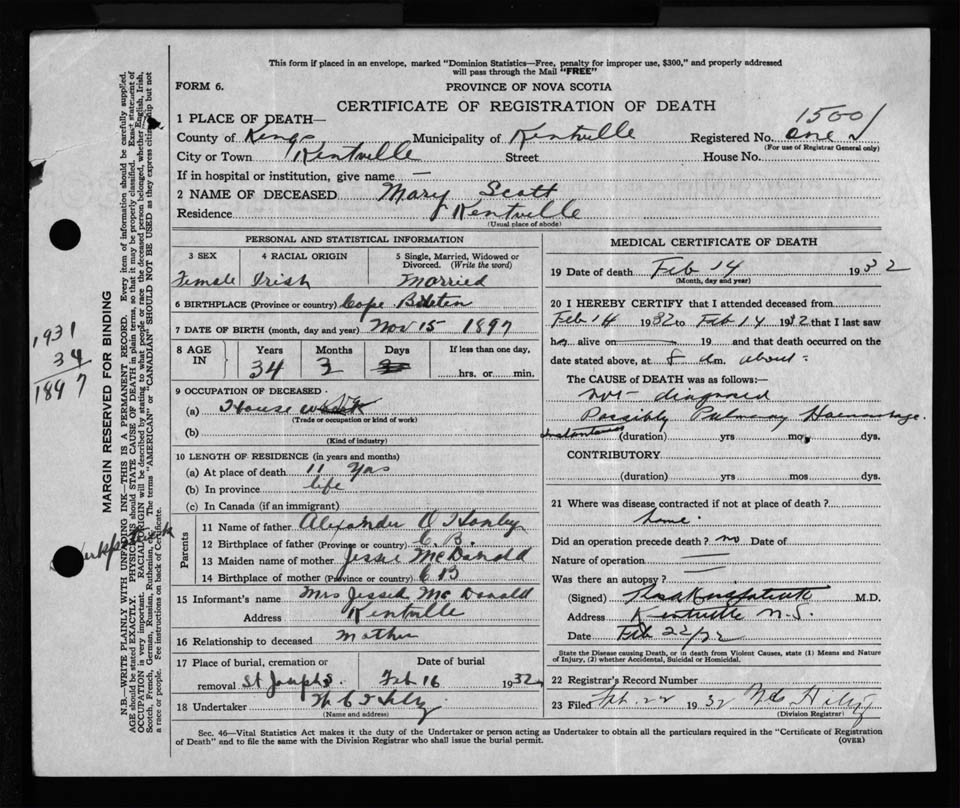 This form if placed in an envelope, marked "Dominion Statistics—Free, penalty for improper use, $300," and properly addressed
will pass through the Mail "FREE"
FORM 6.
PROVINCE OF NOVA SCOTIA
CERTIFICATE OF REGISTRATION OF DEATH
1500
1 PLACE OF DEATH—
County of Kings Municipality of Kentville Registered No. one
(For use of Registrar General only)
City or Town Kentville Street House No.
If in hospital or institution, give name —
2 NAME OF DECEASED Mary Scott
Residence Kentville
(Usual place of abode)
PERSONAL AND STATISTICAL INFORMATION
3 SEX 4 RACIAL ORIGIN 5 Single, Married, Widowed or Divorced. (Write the word)
Female Irish Married
6 BIRTHPLACE (Province or country) Cape Breton
7 DATE OF BIRTH (month, day and year) Nov 15 1897
8 AGE IN Years Months Days If less than one day,
34 3 hrs. or min.
9 OCCUPATION OF DECEASED
(a) House
(Trade or occupation or kind of work)
(b)
(Kind of industry)
10 LENGTH OF RESIDENCE (in years and months)
(a) At place of death 11 yrs
(b) In province life
(c) In Canada (if an immigrant)
Parents
11 Name of father Alexander O Hanley
12 Birthplace of father (Province or country) C. B.
13 Maiden name of mother Jessie McDonald
14 Birthplace of mother (Province or country) C B
15 Informant's name Mrs Jessie McDonald
Address Kentville
16 Relationship to deceased Mother
17 Place of burial, cremation or Date of burial
removal St Josephs Feb 16 1932
18 Undertaker
(Name and address)
MEDICAL CERTIFICATE OF DEATH
19 Date of death Feb 14 1932
(Month, day and year)
20 I HEREBY CERTIFY that I attended deceased from
Feb 14 1932 to Feb 14 1932 that I last saw
her alive on 19 and that death occurred on the
date stated above, at 8 m. about
The CAUSE OF DEATH was as follows:—
not diagnosed
Possibly Pulmonary Haemorrhage.
Instantaneous (duration) yrs mos. dys.
CONTRIBUTORY
(duration) yrs mos dys.
21 Where was disease contracted if not at place of death?
home.
Did an operation precede death? no Date of
Nature of operation
Was there an autopsy?
(Signed) M.D.
Address Kentville N.S.
Date Feb 22/32
State the Disease causing Death, or in death from Violent Causes, state (1) Means and Nature
of Injury, (2) whether Accidental, Suicidal or Homicidal.
22 Registrar's Record Number
23 Filed 22 1932
(Division Registrar)
Sec. 46—Vital Statistics Act makes it the duty of the Undertaker or person acting as Undertaker to obtain all the particulars required in the "Certificate of Registration
of Death" and to file the same with the Division Registrar who shall issue the burial permit. (OVER)
1931
34
1897
MARGIN RESERVED FOR BINDING
N.B.—WRITE PLAINLY WITH UNFADING INK—THIS IS A PERMANENT RECORD. Every item of information should be carefully supplied.
AGE should be stated EXACTLY. PHYSICIANS should STATE CAUSE OF DEATH in plain terms, so that it may be properly classified. Exact statement of
OCCUPATION is very important. RACIAL ORIGIN will be described by stating to what people or race the deceased person belonged, whether English, Irish,
Scotch, French, German, Russian, Ruthenian, etc. The terms "AMERICAN" or "CANADIAN" SHOULD NOT BE USED as they express citizenship but not
a race or people. Fee instructions on back of Certificate.